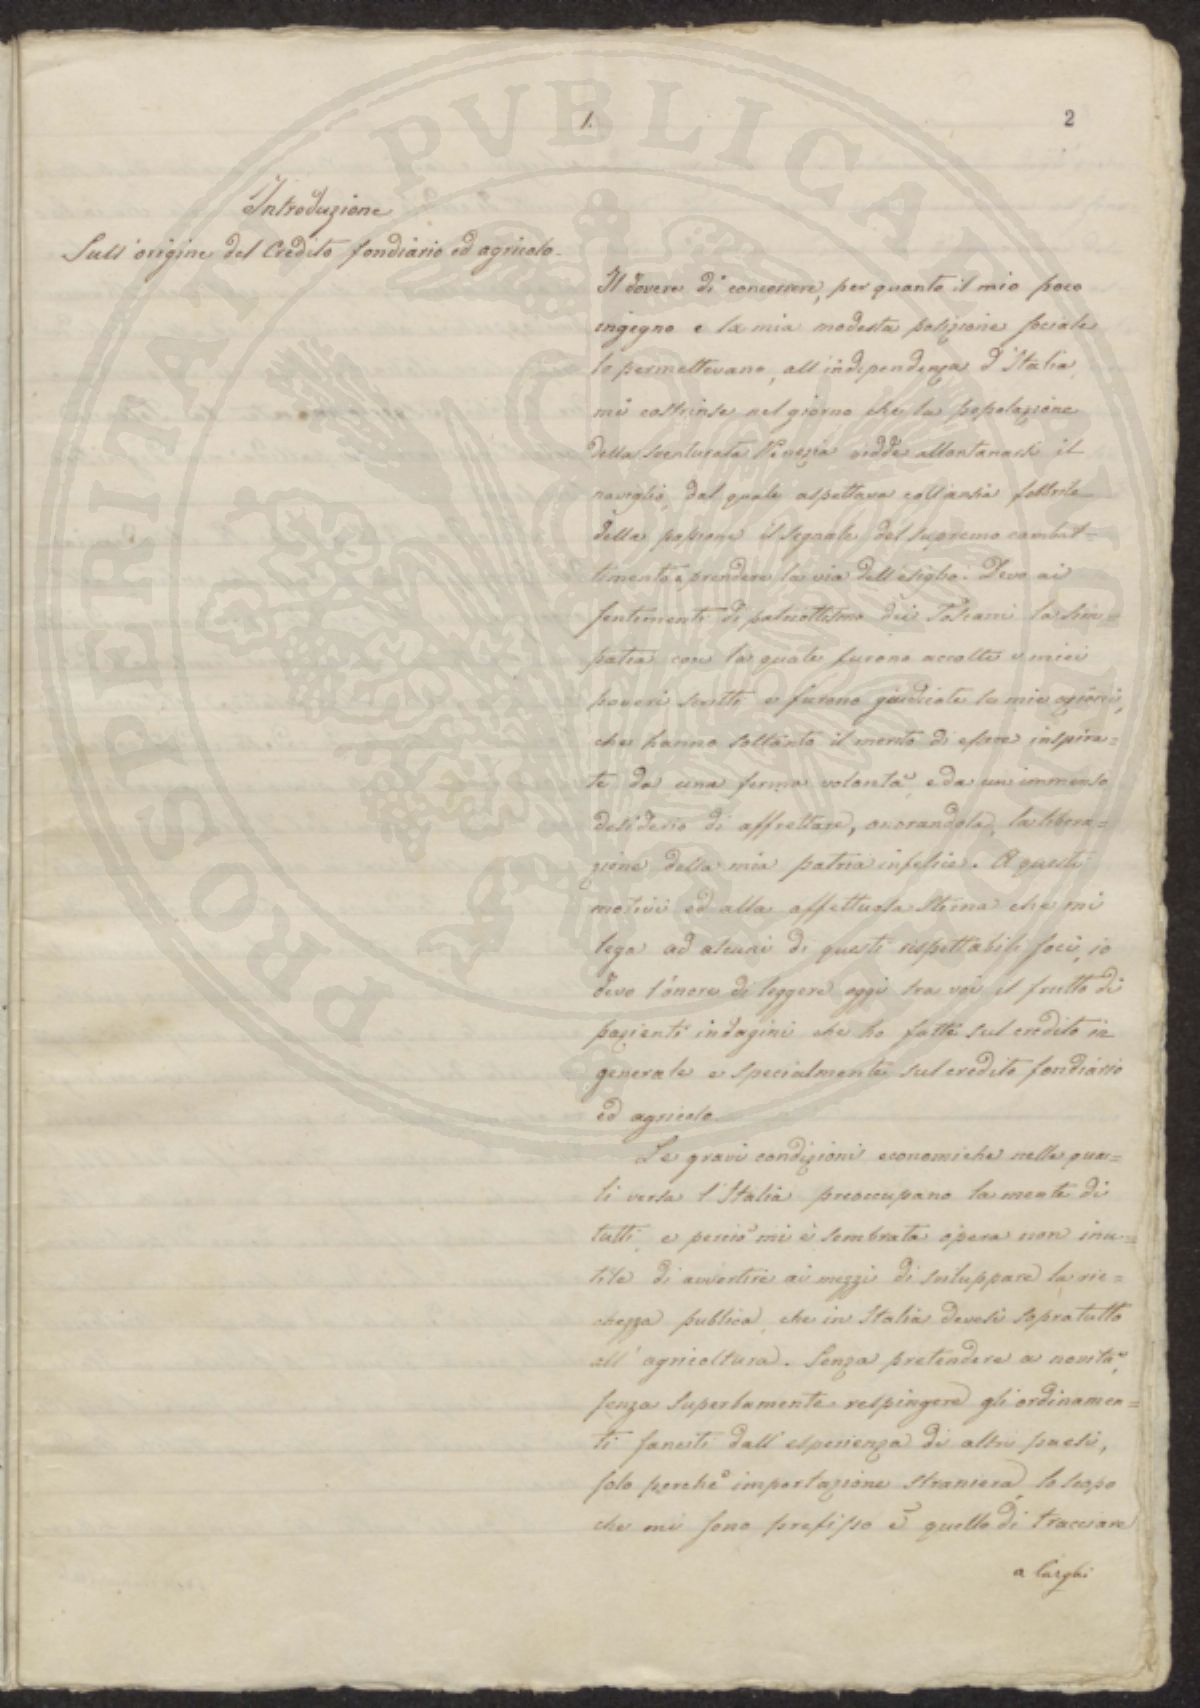 1.
2
Introduzione
Sull'origine del Credito fondiario ed agricolo.
Il dovere di concorrere, per quanto il mio poco
ingegno e la mia modesta posizione sociale
lo permettevano, all'indipendenza d'Italia
mi costrinse nel giorno che la popolazione
della sventurata Venezia vedde allontanarsi il
naviglio, dal quale aspettava coll'ansia febbrile
della passione il segnale del supremo combat=
timento, a prendere la via dell'esiglio. Devo ai
sentimenti di patriottismo dei Toscani la sim=
patia con la quale furono accolti i miei
poveri scritti e furono giudicate le mie azioni,
che hanno soltanto il merito di essere inspira=
te da una ferma volontà e da un immenso
desiderio di affrettare, onorandola, la libera=
zione della mia patria infelice. A questi
motivi ed alla affettuosa stima che mi
lega ad alcuni di questi rispettabili soci, io
devo l'onore di leggere oggi tra voi il frutto di
pazienti indagini che ho fatte sul credito in
generale e specialmente sul credito fondiario
ed agricolo.
Le gravi condizioni economiche nelle qua=
li versa l'Italia preoccupano la mente di
tutti, e perciò mi è sembrata opera non inu=
tile di avvertire ai mezzi di sviluppare la ric=
chezza publica, che in Italia devesi sopratutto
all'agricoltura. Senza pretendere a novità,
senza superbamente respingere gli ordinamen=
ti sanciti dall'esperienza di altri paesi,
solo perchè importazione straniera, lo scopo
che mi sono prefisso è quello di tracciare
a larghi